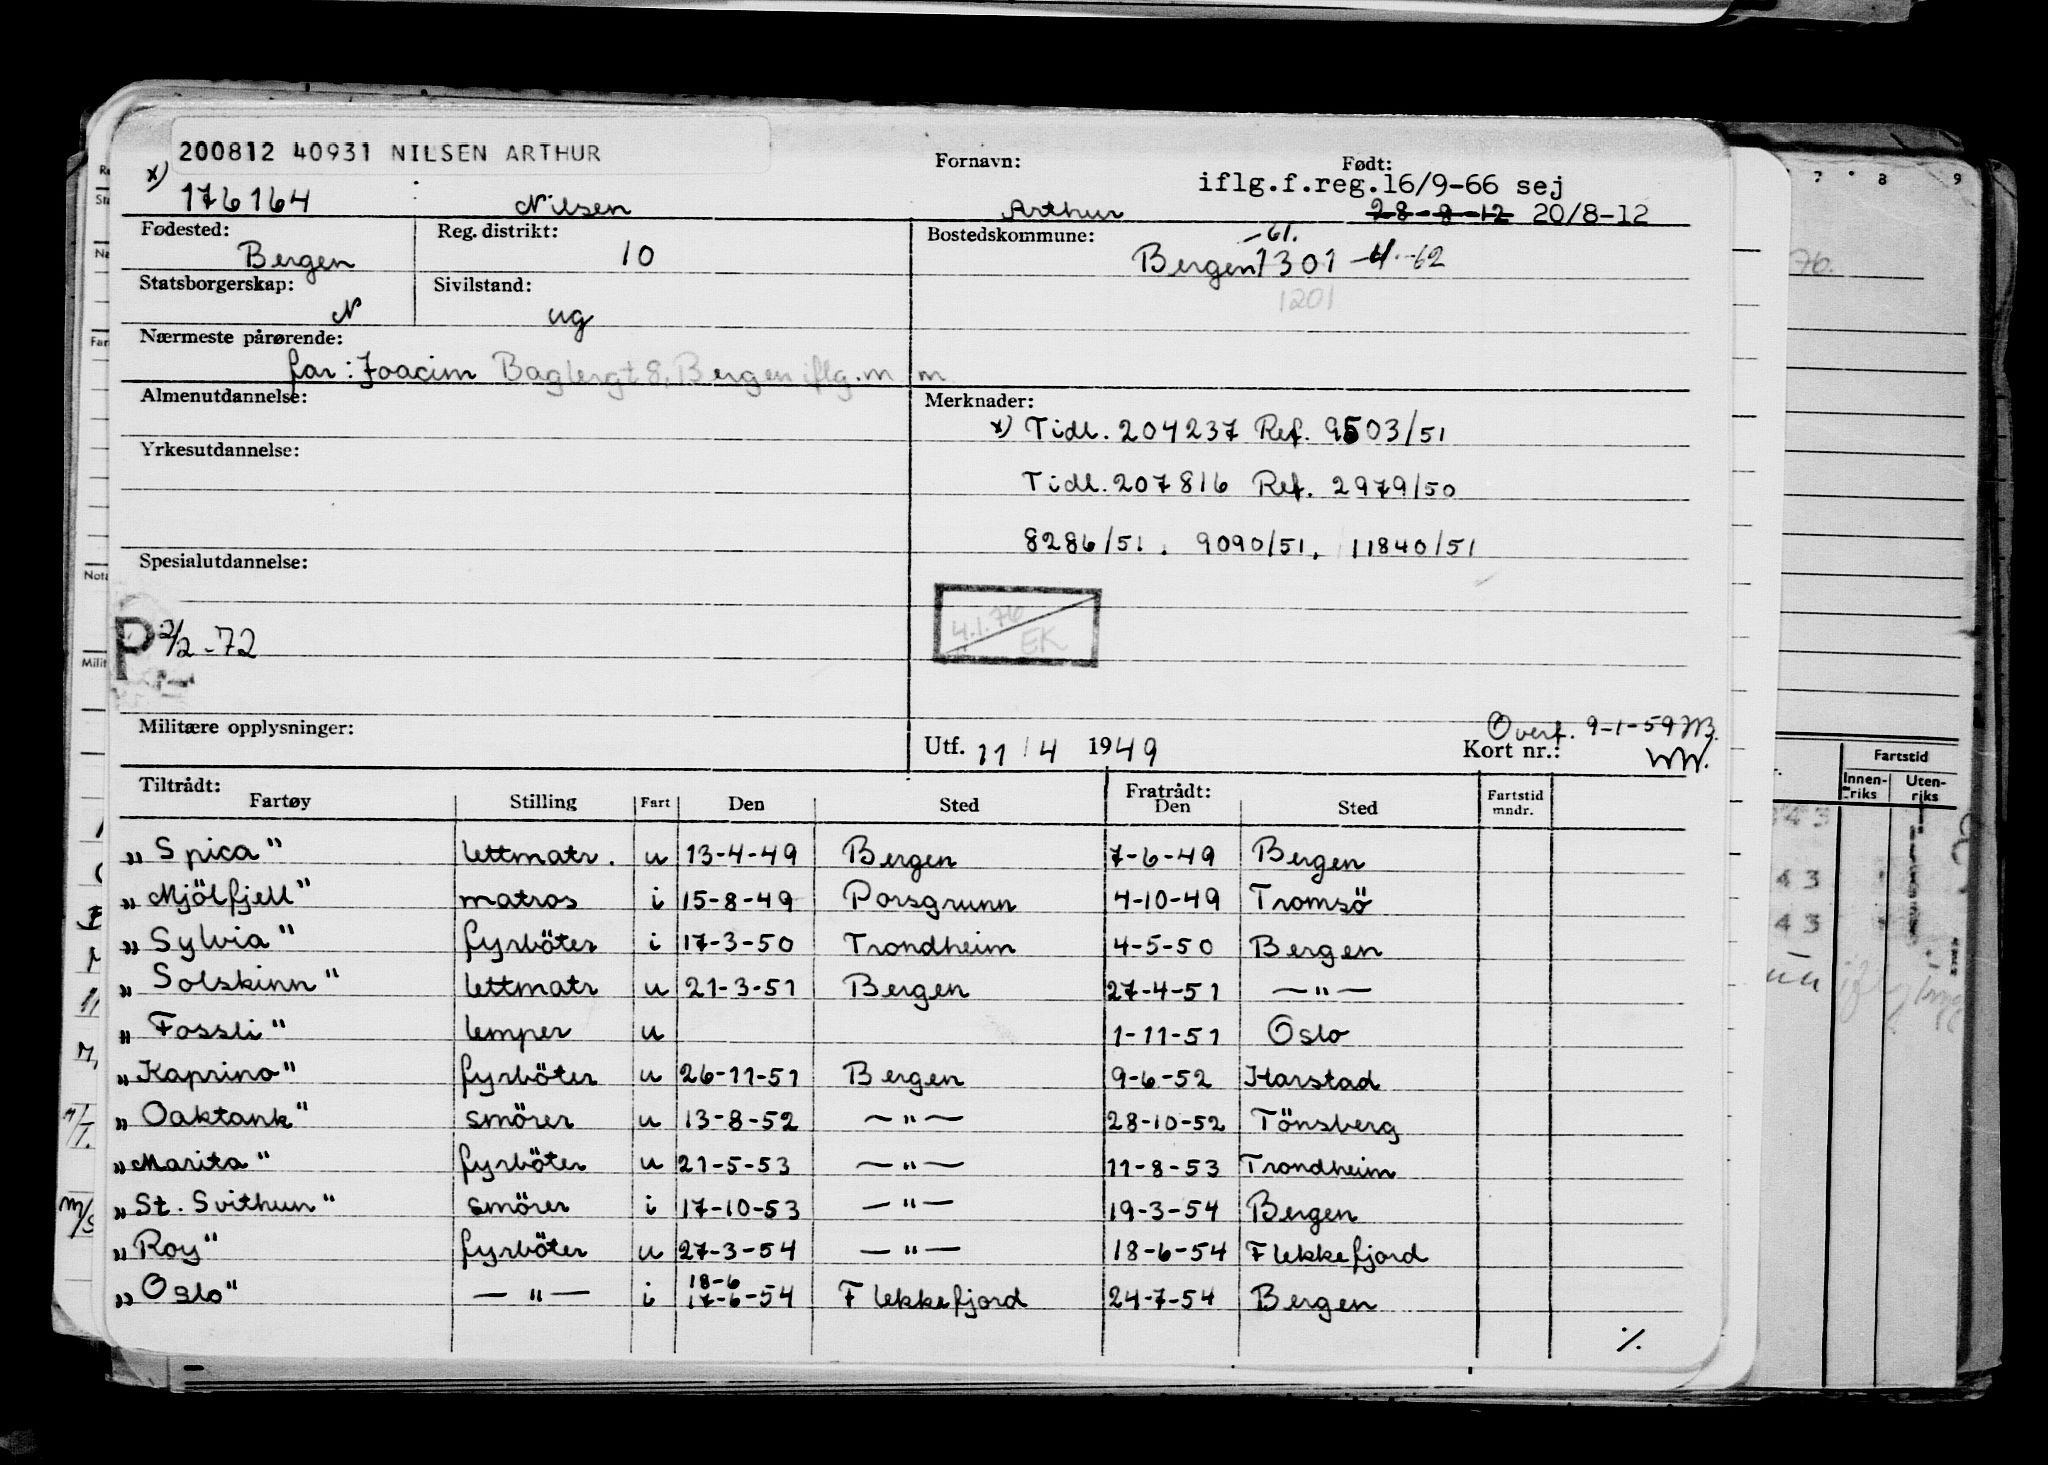 200812 40931 NILSEN ARTHUR
Fornavn: Født:
x) iflg.f.reg.16/9-66 sej
176164 Nilsen Arthur 28-8-12 20/8-12
Fødested: Reg. distrikt: Bostedskommune:
-61.
Bergen 10 Bergen 1301 -4.-62
Statsborgerskap: Sivilstand: 1201
N ug
Nærmeste pårørende:
far: Joacim Baglergt 8, Bergen iflg. m m
Almenutdannelse: Merknader:
x) Tidl. 204237 Ref. 9503/51
Yrkesutdannelse:
Tidl. 207816 Ref. 2979/50
8286/51. 9090/51. 11840/51
Spesialutdannelse:
4.1.76 EK
P 2/2-72
Militære opplysninger: Overf. 9-1-59
Utf. 11/4 1949 Kort nr.: WW.
Tiltrådt: Fratrådt:
Fartøy Stilling Fart Den Sted Den Sted Fartstid mndr.
"Spica" lettmatr. u 13-4-49 Bergen 7-6-49 Bergen
"Mjölfjell" matros i 15-8-49 Porsgrunn 4-10-49 Tromsö
"Sylvia" fyrböter i 17-3-50 Trondheim 4-5-50 Bergen
"Solskinn" lettmatr u 21-3-51 Bergen 27-4-51 —"—
"Fossli" lemper u 1-11-51 Oslo
"Kaprino" fyrböter u 26-11-51 Bergen 9-6-52 Harstad
"Oaktank" smörer u 13-8-52 —"— 28-10-52 Tönsberg
"Marita" fyrböter u 21-5-53 —"— 11-8-53 Trondheim
"St. Svithun" smörer i 17-10-53 —"— 19-3-54 Bergen
"Roy" fyrböter u 27-3-54 —"— 18-6-54 Flekkefjord
18-6
"Oslo" —"— i 17-6-54 Flekkefjord 24-7-54 Bergen
%
7 8 9
76.
Fartstid
Innenriks Utenriks
43
43